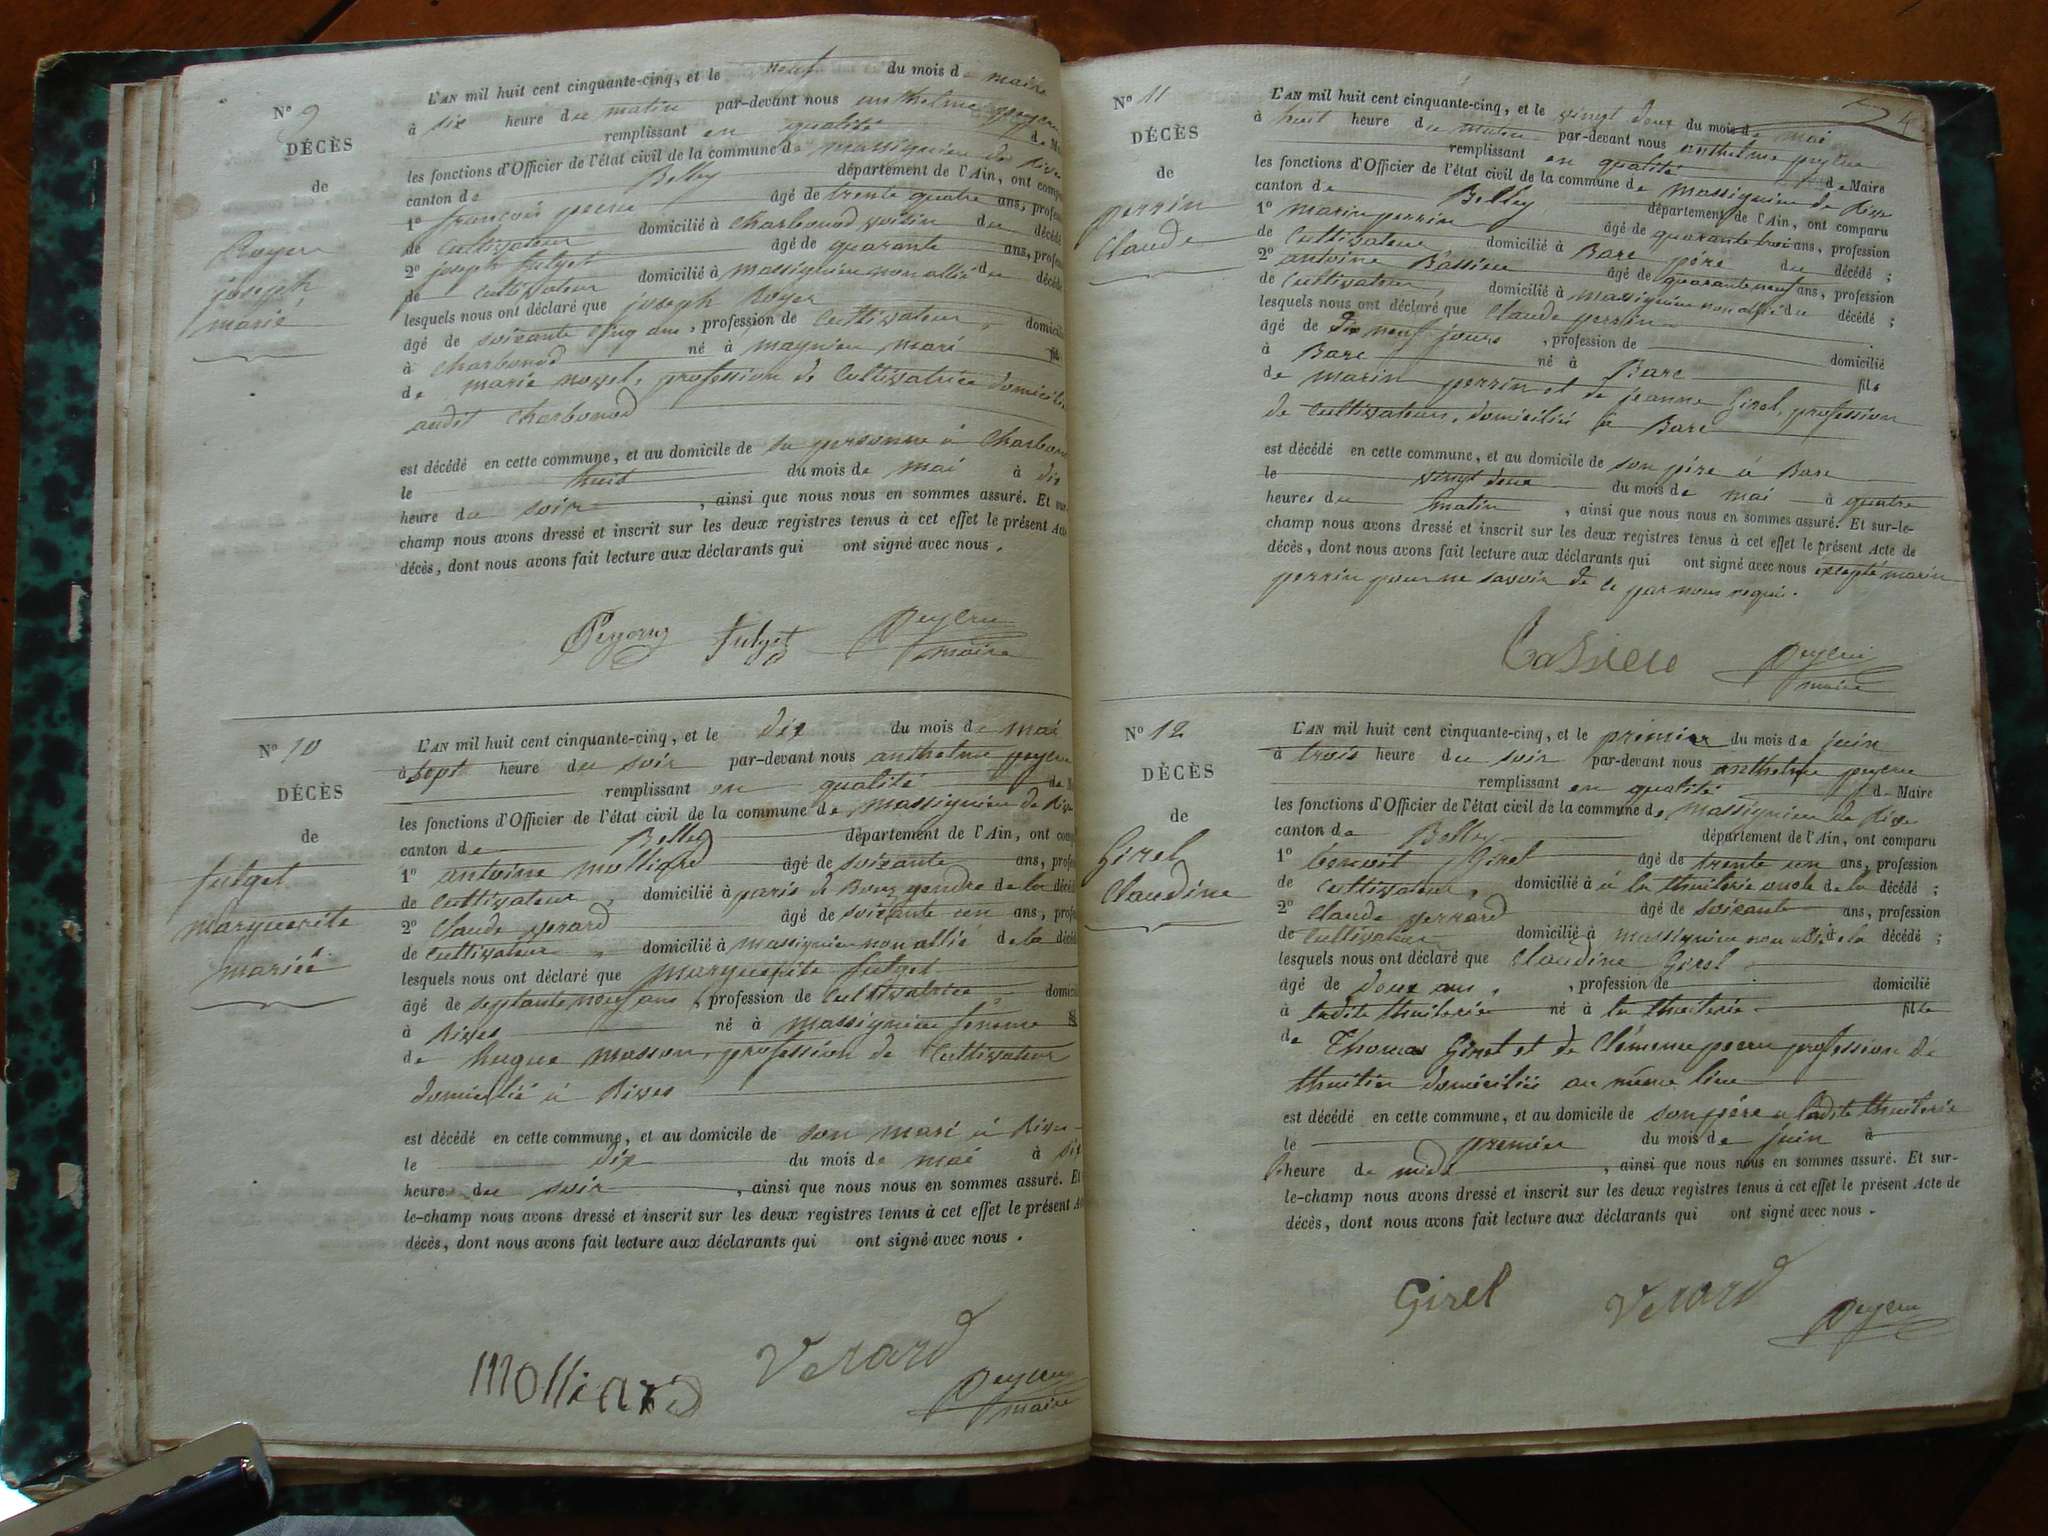 N° 9
DÉCÈS
de
Royer
joseph
marié
L'AN mil huit cent cinquante-cinq, et le neuf du mois de
à six heure du matin par-devant nous anthelme peycru
remplissant en qualité de M
les fonctions d'Officier de l'état civil de la commune de massignieu de Rive
canton de Belley département de l'Ain, ont comp
1° françois âgé de trente quatre ans, profes
de Cultivateur domicilié à Charbonod voisin du décédé
2° joseph fulget âgé de quarante ans, profes
de Cultivateur domicilié à massignieu non allié du décédé
lesquels nous ont déclaré que joseph Royer
âgé de soixante cinq ans, profession de Cultivateur, domicilié
à Charbonod né à magnieu mari
de marie, profession de Cultivatrice domicilié
audit Charbonod
est décédé en cette commune, et au domicile de sa personne à Charbono
le huit du mois de mai à dix
heure du soir, ainsi que nous nous en sommes assuré. Et sur
champ nous avons dressé et inscrit sur les deux registres tenus à cet effet le présent Acte
décès, dont nous avons fait lecture aux déclarants qui ont signé avec nous.
fulget peycru
maire
N° 10
DÉCÈS
de
fulget
marguerite
mariée
L'AN mil huit cent cinquante-cinq, et le dix du mois de mai
à sept heure du soir par-devant nous anthelme peycru
remplissant en qualité de M
les fonctions d'Officier de l'état civil de la commune de massignieu de Rive
canton de Belley département de l'Ain, ont comp
1° antoine molliard âgé de soixante ans, profes
de Cultivateur, domicilié à gendre de la décédé
2° Claude verard âgé de soixante un ans, profes
de Cultivateur, domicilié à massignieu non allié de la décédé
lesquels nous ont déclaré que marguerite fulget
âgé de septante neuf ans, profession de Cultivatrice, domicilié
à Rives né à massignieu femme
de hugue masson, profession de Cultivateur
domicilié à Rives
est décédé en cette commune, et au domicile de son mari à Rives
le dix du mois de mai à six
heure du soir, ainsi que nous nous en sommes assuré. Et
le-champ nous avons dressé et inscrit sur les deux registres tenus à cet effet le présent Ac
décès, dont nous avons fait lecture aux déclarants qui ont signé avec nous.
Molliard Verard peycru
maire
4
N° 11
DÉCÈS
de
perrin
Claude
L'AN mil huit cent cinquante-cinq, et le vingt deux du mois de mai
à huit heure du matin par-devant nous anthelme peycru
remplissant en qualité de Maire
les fonctions d'Officier de l'état civil de la commune de massignieu de Rive
canton de Belley département de l'Ain, ont comparu
1° marin perrin âgé de quarante trois ans, profession
de Cultivateur, domicilié à Bare père du décédé ;
2° antoine Bassieu âgé de quarante neuf ans, profession
de Cultivateur, domicilié à massignieu non allié du décédé ;
lesquels nous ont déclaré que Claude perrin
âgé de Dix neuf jours, profession de domicilié
à Bare né à Bare fils
de marin perrin et de jeanne Girel, profession
de Cultivateurs, domiciliés à Bare
est décédé en cette commune, et au domicile de son père à Bare
le vingt deux du mois de mai à quatre
heures du matin, ainsi que nous nous en sommes assuré. Et sur-le-
champ nous avons dressé et inscrit sur les deux registres tenus à cet effet le présent Acte de
décès, dont nous avons fait lecture aux déclarants qui ont signé avec nous excepté marin
perrin pour ne savoir de ce par nous requis.
peycru
maire
N° 12
DÉCÈS
de
Girel
Claudine
L'AN mil huit cent cinquante-cinq, et le premier du mois de juin
à trois heure du soir par-devant nous anthelme peycru
remplissant en qualité de Maire
les fonctions d'Officier de l'état civil de la commune de massignieu de Rive
canton de Belley département de l'Ain, ont comparu
1° benoit Girel âgé de trente un ans, profession
de Cultivateur, domicilié à à la thuilerie oncle de la décédé ;
2° Claude verrard âgé de soixante ans, profession
de Cultivateur domicilié à massignieu non allié de la décédé ;
lesquels nous ont déclaré que Claudine Girel
âgé de deux ans, profession de domicilié
à ladite thuilerie né à la thuilerie fille
de Thomas Girel et de Clémence profession de
thuilier domiciliés au même lieu
est décédé en cette commune, et au domicile de son père a ladite thuilerie
le premier du mois de juin à
heure de midi, ainsi que nous nous en sommes assuré. Et sur-
le-champ nous avons dressé et inscrit sur les deux registres tenus à cet effet le présent Acte de
décès, dont nous avons fait lecture aux déclarants qui ont signé avec nous.
Girel Verard peycru